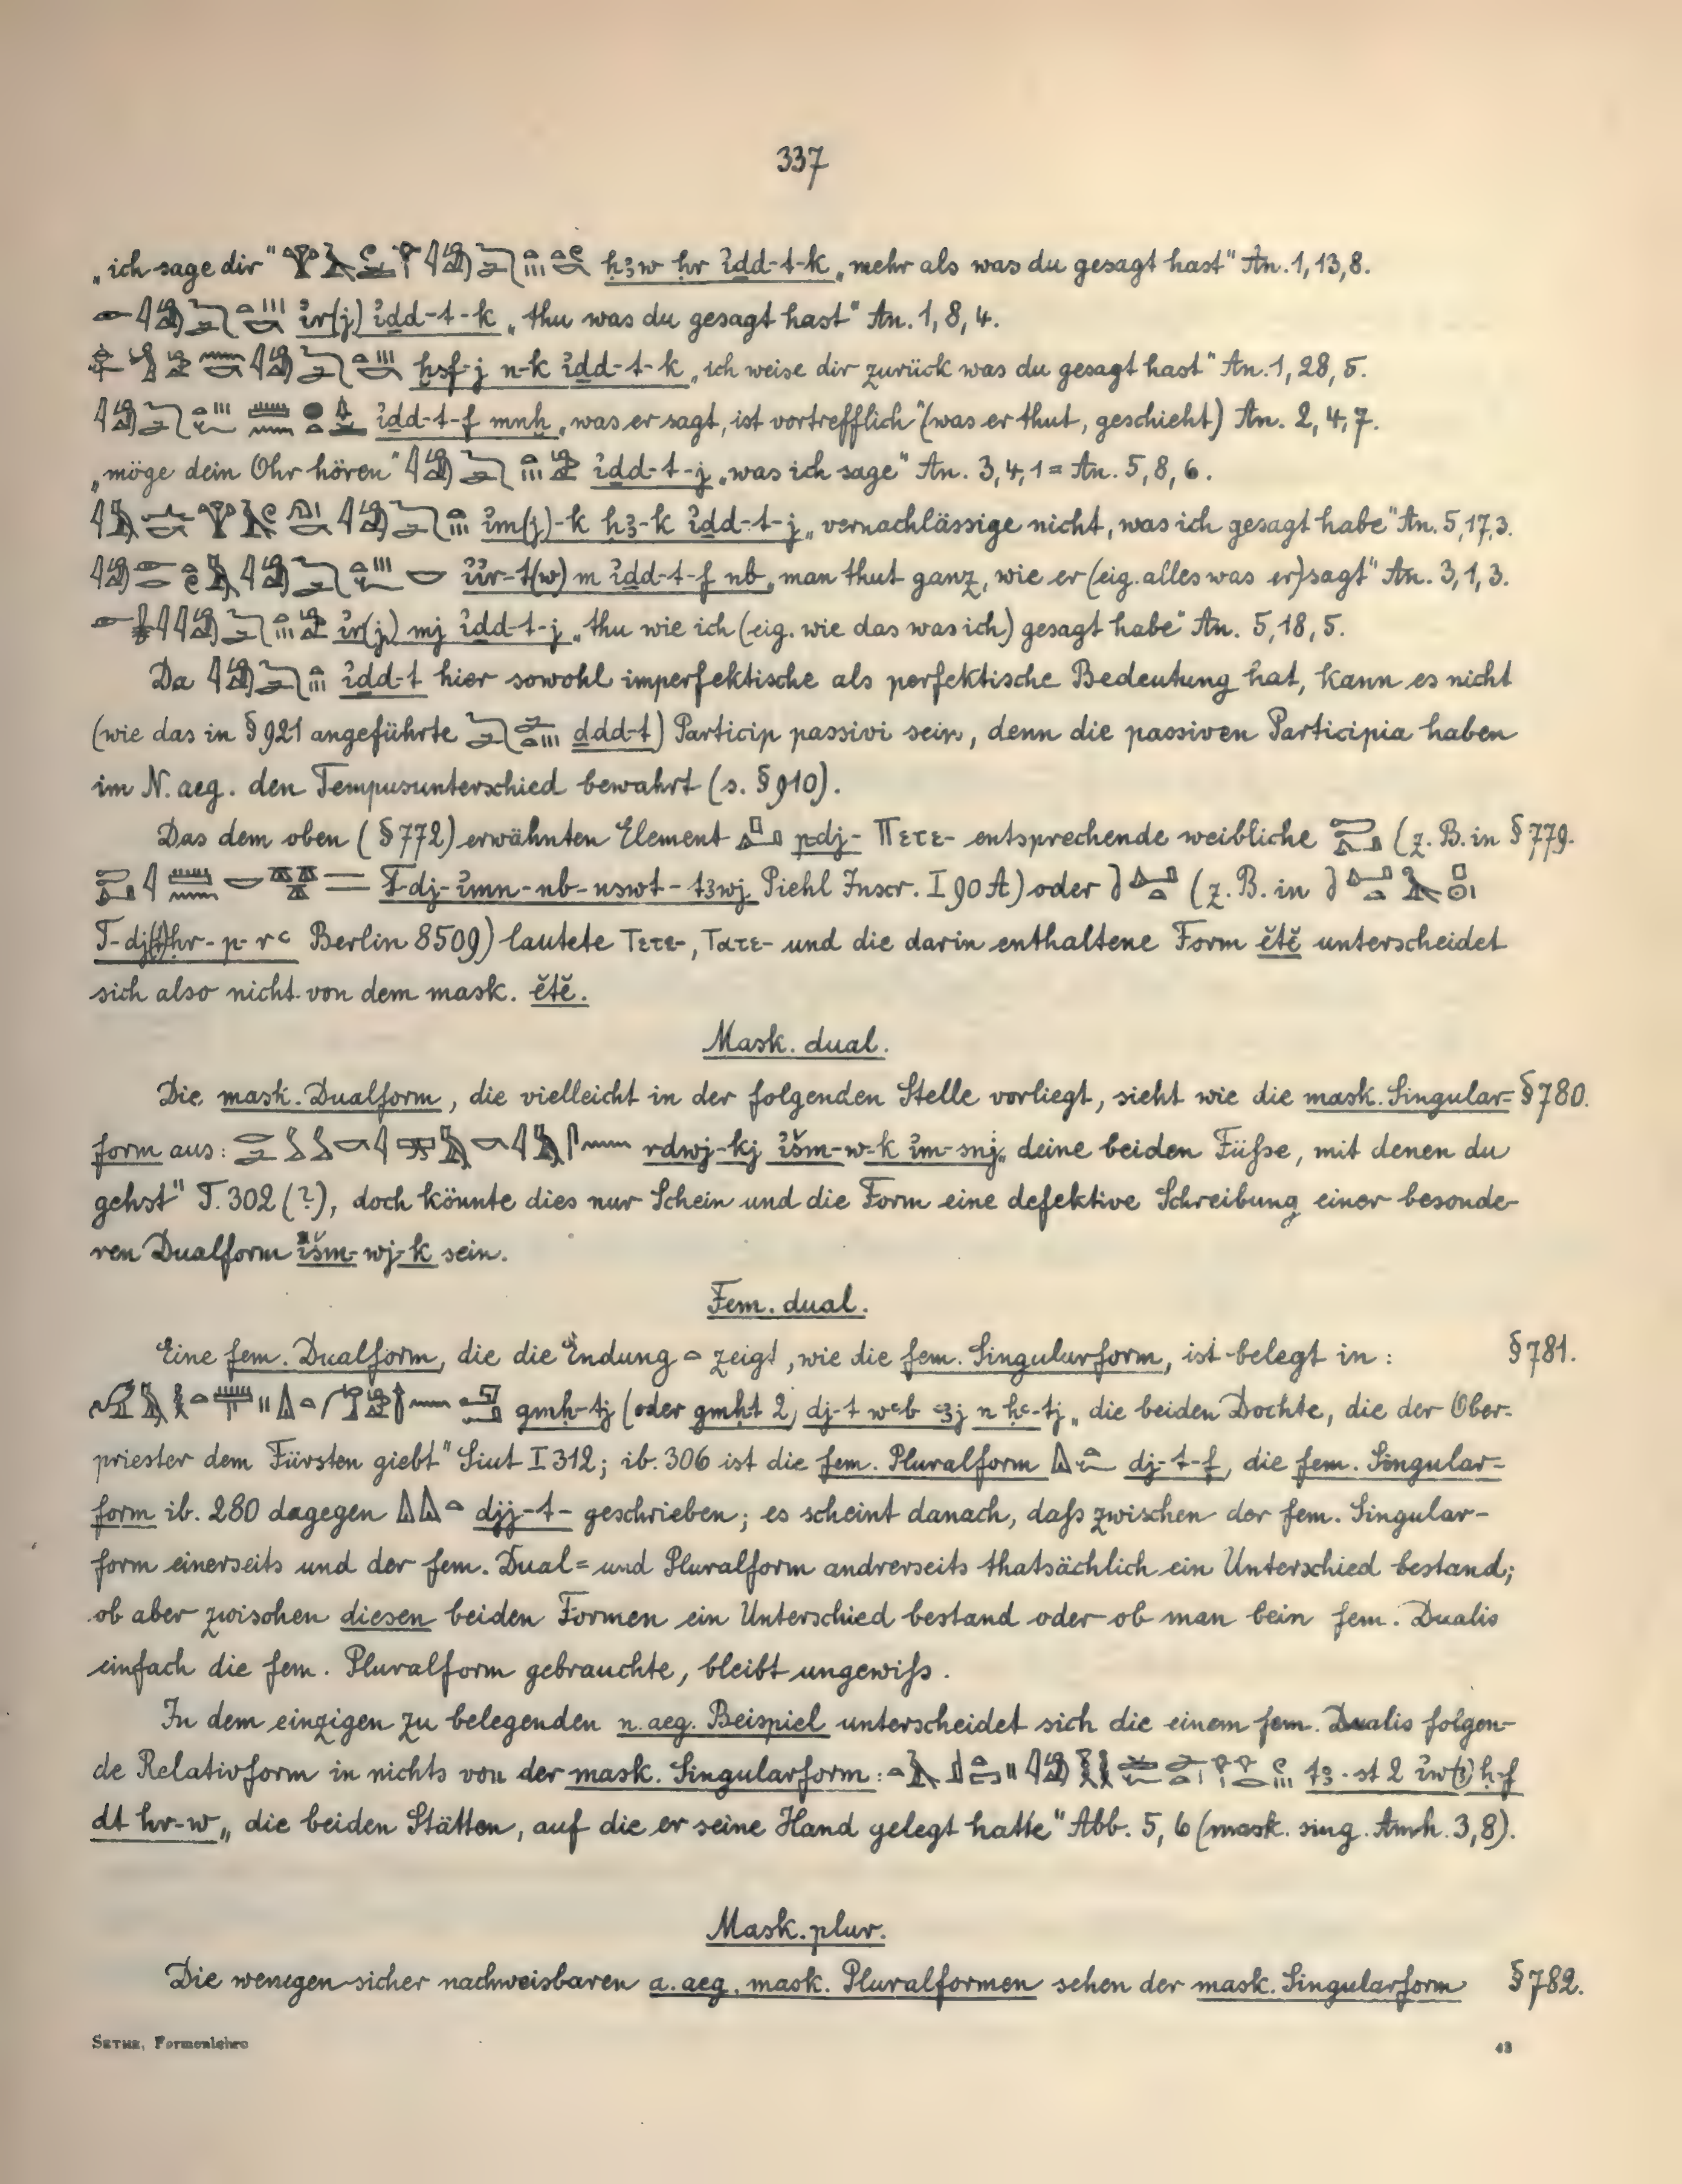 337
„ich sage dir“ ḥꜣw ḥr i҆dd-t-k „mehr als was du gesagt hast“ An. 1, 13, 8.
i҆r(j) i҆dd-t-k „thu was du gesagt hast“ An. 1, 8, 4.
ḫsf-j n-k i҆dd-t-k „ich weise dir zurück was du gesagt hast“ An. 1, 28, 5.
i҆dd-t-f mnḫ „was er sagt, ist vortrefflich“ (was er thut, geschieht) An. 2, 4, 7.
„möge dein Ohr hören“ i҆dd-t-j „was ich sage“ An. 3, 4, 1 = An. 5, 8, 6.
i҆m(j)-k ḫꜣ-k i҆dd-t-j „vernachlässige nicht, was ich gesagt habe“ An. 5, 17, 3.
i҆i҆r-t(w) m i҆dd-t-f nb „man thut ganz, wie er (eig. alles was er) sagt“ An. 3, 1, 3.
i҆r(j) mj i҆dd-t-j „thu wie ich (eig. wie das was ich) gesagt habe“ An. 5, 18, 5.
Da i҆dd-t hier sowohl imperfektische als perfektische Bedeutung hat, kann es nicht
(wie das in § 921 angeführte dddt) Particip passivi sein, denn die passiven Participia haben
im N. aeg. den Tempusunterschied bewahrt (s. § 910).
Das dem oben (§ 772) erwähnten Element pdj- Πετε- entsprechende weibliche (z. B. in § 779.
T-dj-i҆mn-nb-nswt-tꜣwj Piehl Inscr. I 90 A) oder (z. B. in
T-dj(t)ḥr-p-rꜥ Berlin 8509) lautete Τετε-, Τατε- und die darin enthaltene Form ĕtĕ unterscheidet
sich also nicht von dem mask. ĕtĕ.
Mask. dual.
Die mask. Dualform, die vielleicht in der folgenden Stelle vorliegt, sieht wie die mask. Singular- § 780.
form aus: rdwj-kj i҆šm-w-k i҆m-snj „deine beiden Füße, mit denen du
gehst“ T. 302 (?), doch könnte dies nur Schein und die Form eine defektive Schreibung einer besonde-
ren Dualform i҆šm-wj-k sein.
Fem. dual.
Eine fem. Dualform, die die Endung zeigt, wie die fem. Singularform, ist belegt in: § 781.
gmḥ-tj (oder gmḥt 2) dj-t wꜥb ꜥꜣj n ḥꜥ-tj „die beiden Dochte, die der Ober-
priester dem Fürsten giebt“ Siut I 312; ib. 306 ist die fem. Pluralform dj-t-f, die fem. Singular-
form ib. 280 dagegen djj-t- geschrieben; es scheint danach, daß zwischen der fem. Singular-
form einerseits und der fem. Dual- und Pluralform andrerseits thatsächlich ein Unterschied bestand;
ob aber zwischen diesen beiden Formen ein Unterschied bestand oder ob man bein fem. Dualis
einfach die fem. Pluralform gebrauchte, bleibt ungewiß.
In dem einzigen zu belegenden n. aeg. Beispiel unterscheidet sich die einem fem. Dualis folgen-
de Relativform in nichts von der mask. Singularform: tꜣ-st 2 i҆w(ꜣ)ḥ-f
dt ḥr-w „die beiden Stätten, auf die er seine Hand gelegt hatte“ Abb. 5, 6 (mask. sing. Amh. 3, 8).
Mask. plur.
Die wenigen sicher nachweisbaren a. aeg. mask. Pluralformen sehen der mask. Singularform § 782.
SETHE, Formenlehre 43